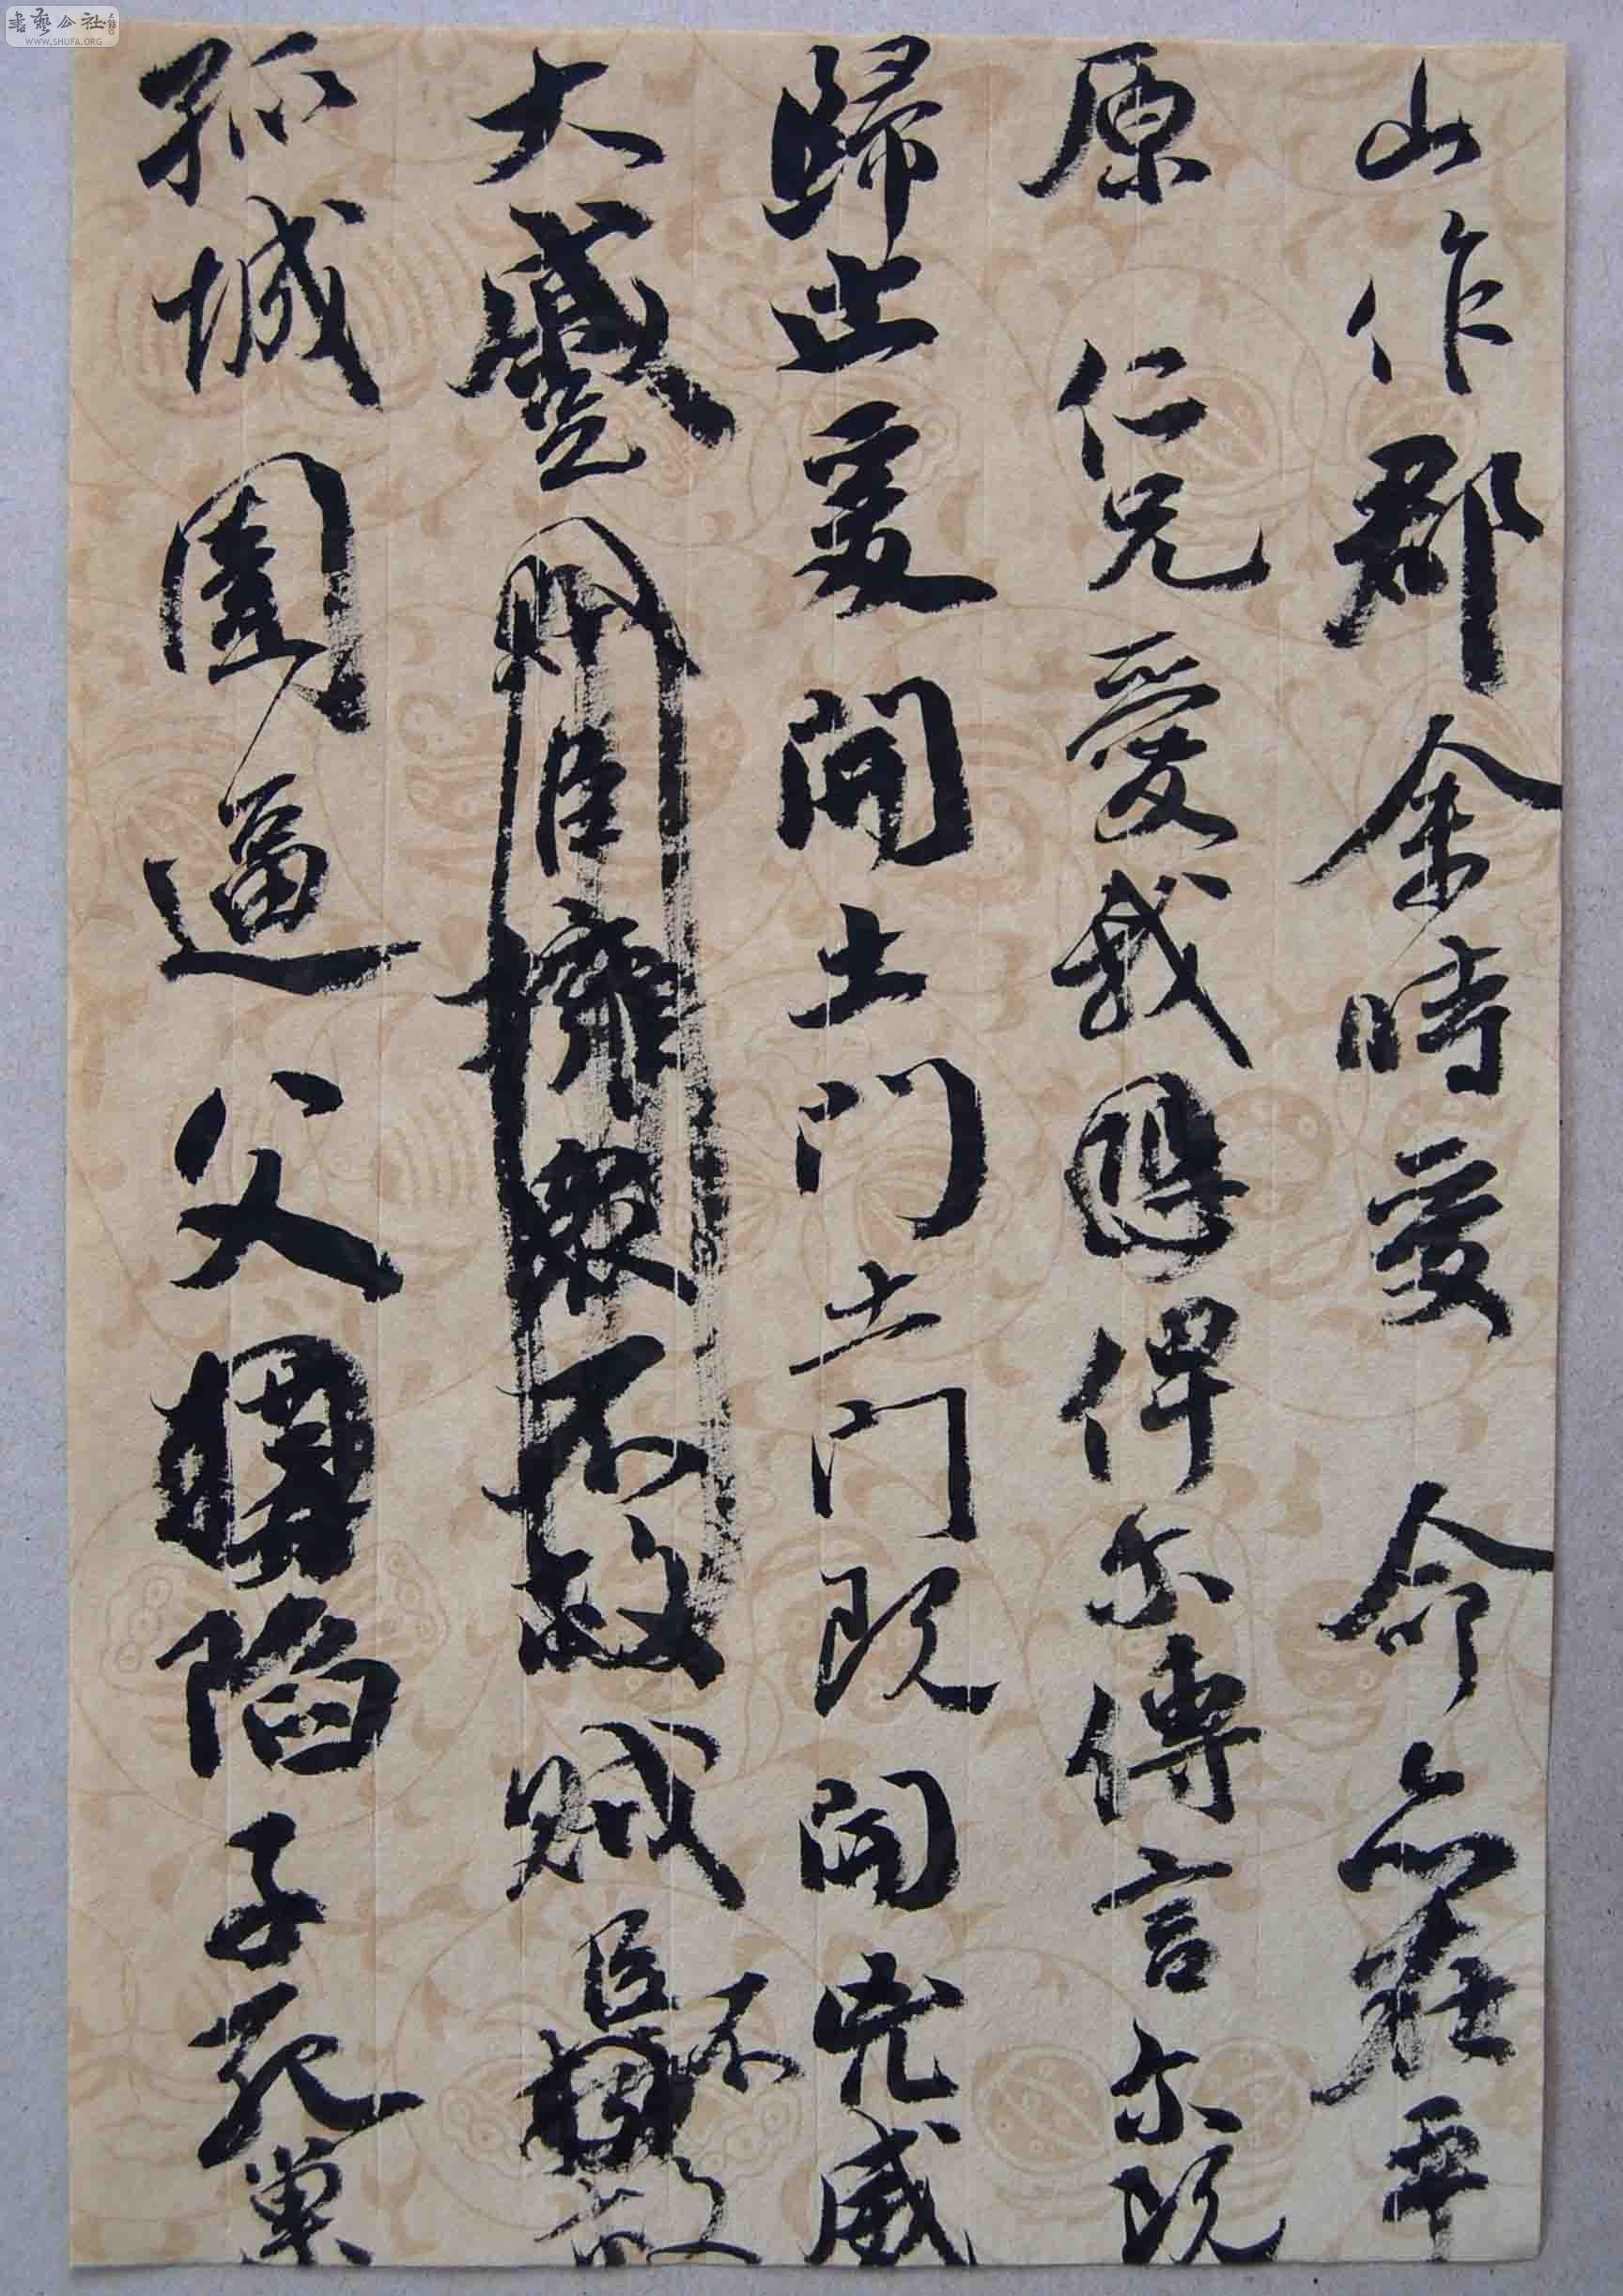 山作郡余時受命亦在平
原仁兄愛我恐俾尓傳言尓既
歸止爰開土門土門既開兇威
大蹙賊臣擁衆不救賊臣不救
孤城圍逼父陷子死巢
書藝公社
WWW.SHUFA.ORG